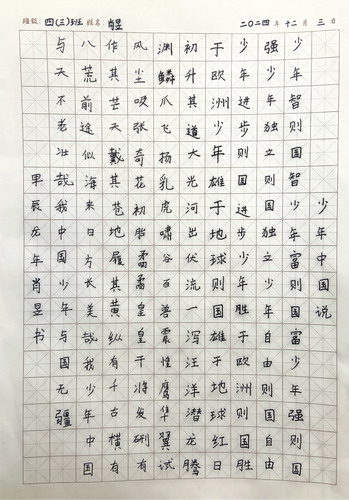 班级：四(三)班 姓名：肖昱 二〇二四年十二月三日
少年中国说
少年智则国智少年富则国富少年强则国
强少年独立则国独立少年自由则国自由
少年进步则国进步少年胜于欧洲则国胜
于欧洲少年雄于地球则国雄于地球红日
初升其道大光河出伏流一泻汪洋潜龙腾
渊鳞爪飞扬乳虎啸谷百兽震惶鹰隼翼试
风尘吸张奇花初胎矞矞皇皇干将发硎有
作其芒天戴其苍地履其黄纵有千古横有
八荒前途似海来日方长美哉我少年中国
与天不老壮哉我中国少年与国无疆
甲辰龙年肖昱书